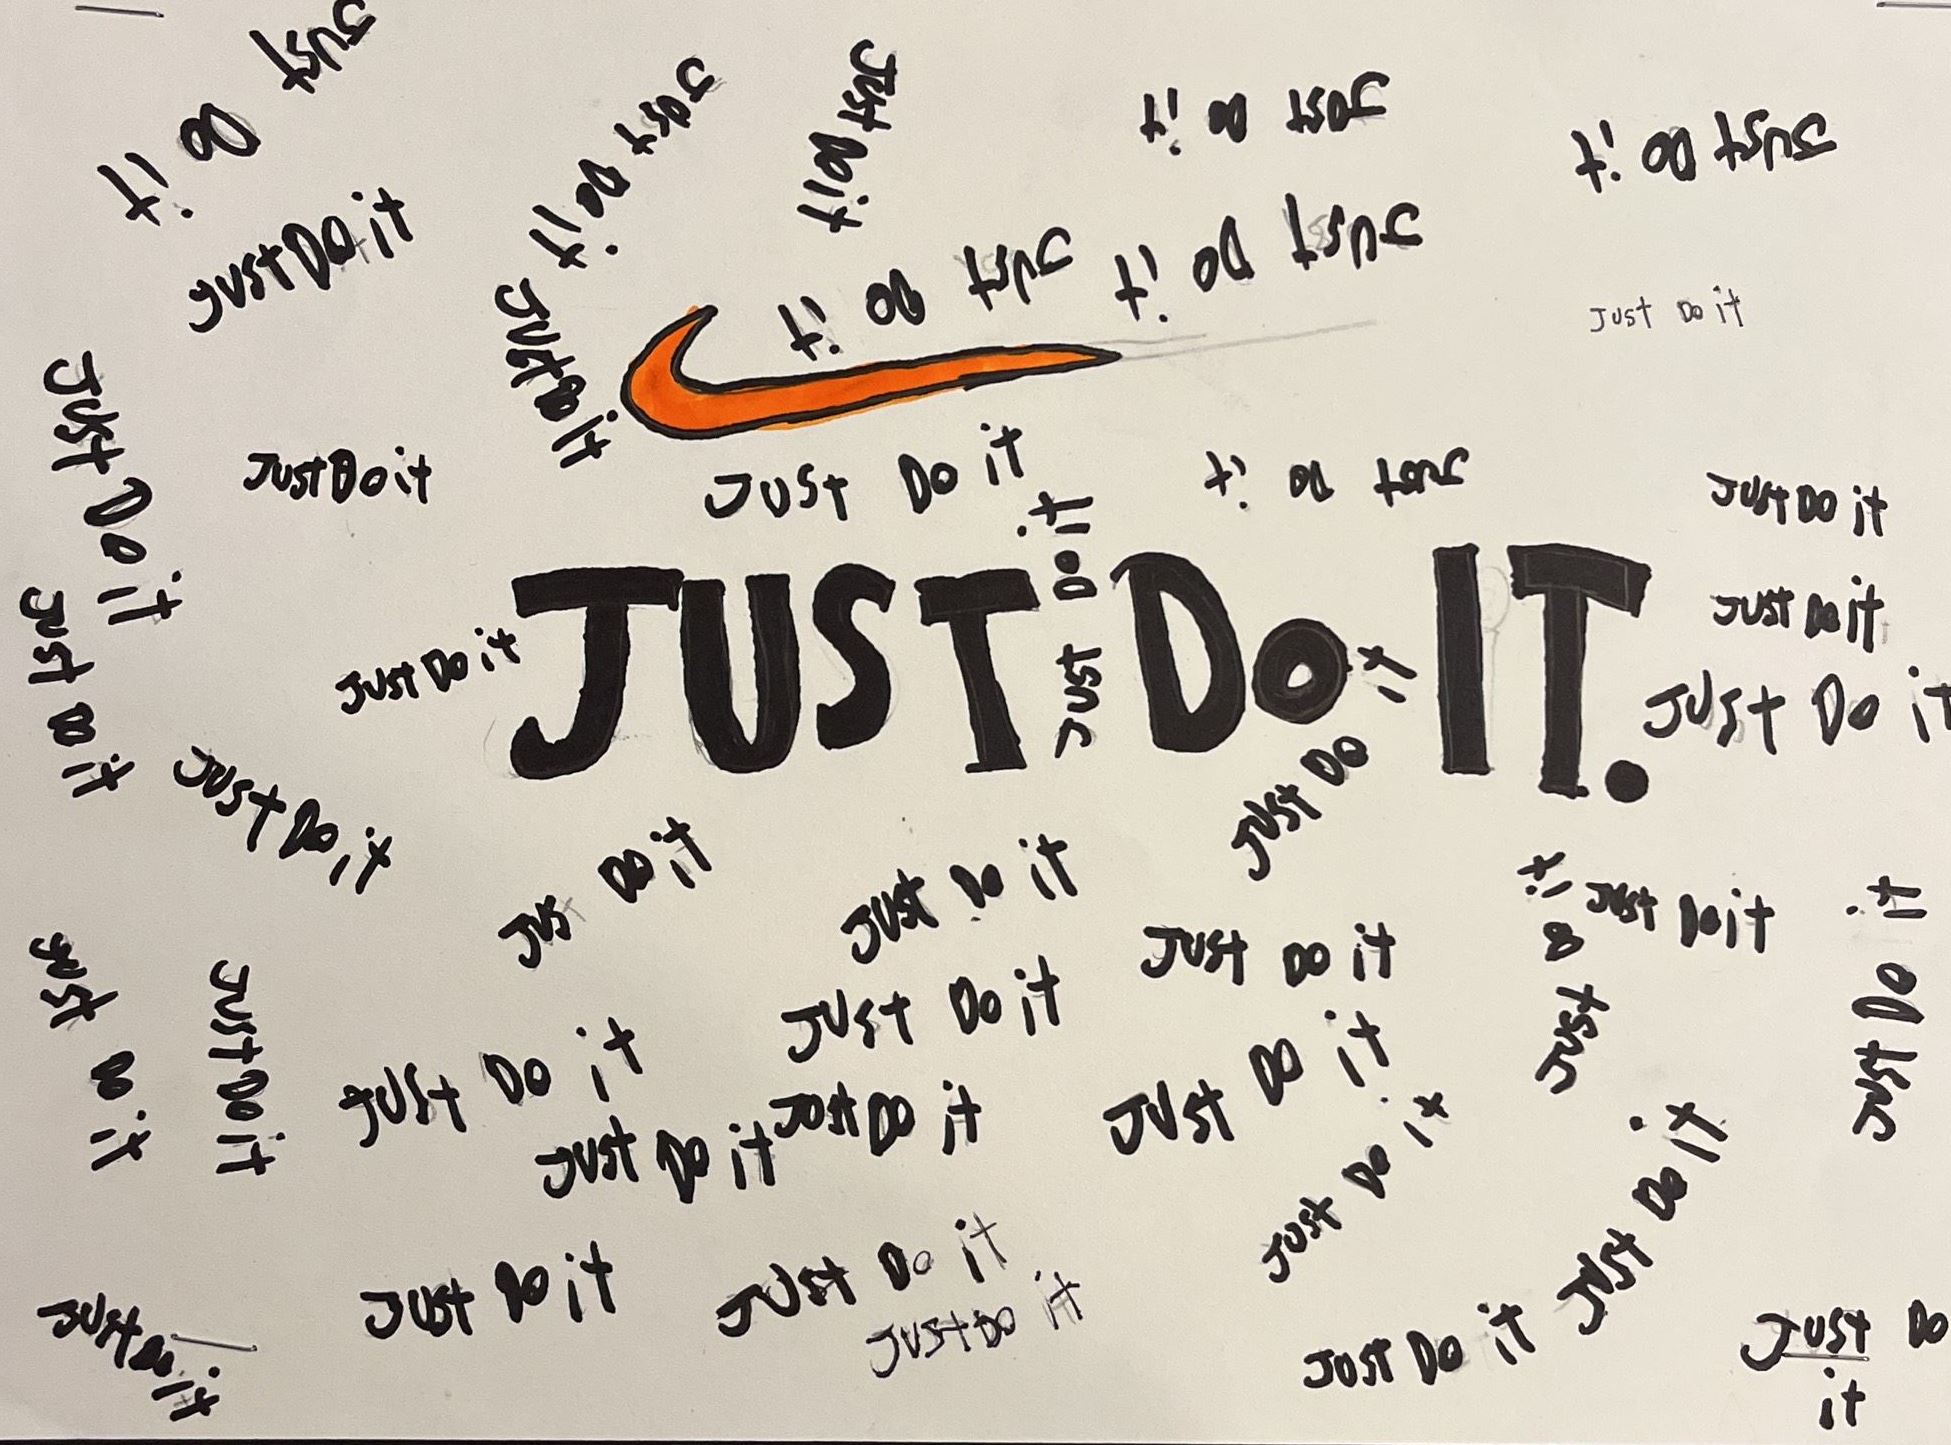 Just
Do
it
Just Do it
Just Do it
Just Do it
Just Do it
Just Do it
Just Do it
Just Do it
Just Do it
Just Do it
Just Do it
Just Do it
Just Do it
Just Do it
Just Do it
Just Do it
JUST DO IT.
Just Do it
Just Do it
Just Do it
Just Do it
Just Do it
Just Do it
Just Do it
Just Do it
Jus Do it
Just Do it
Just Do it
Just Do it
Just Do it
Just Do it
Just Do it
Just Do it
Just Do it
Just Do it
Just Do it
Just Do it
Just Do it
Just Do it
Just Do it
Just Do it
Just Do it
Just Do it
Just Do it
Just Do it
Just Do it
Just Do
it